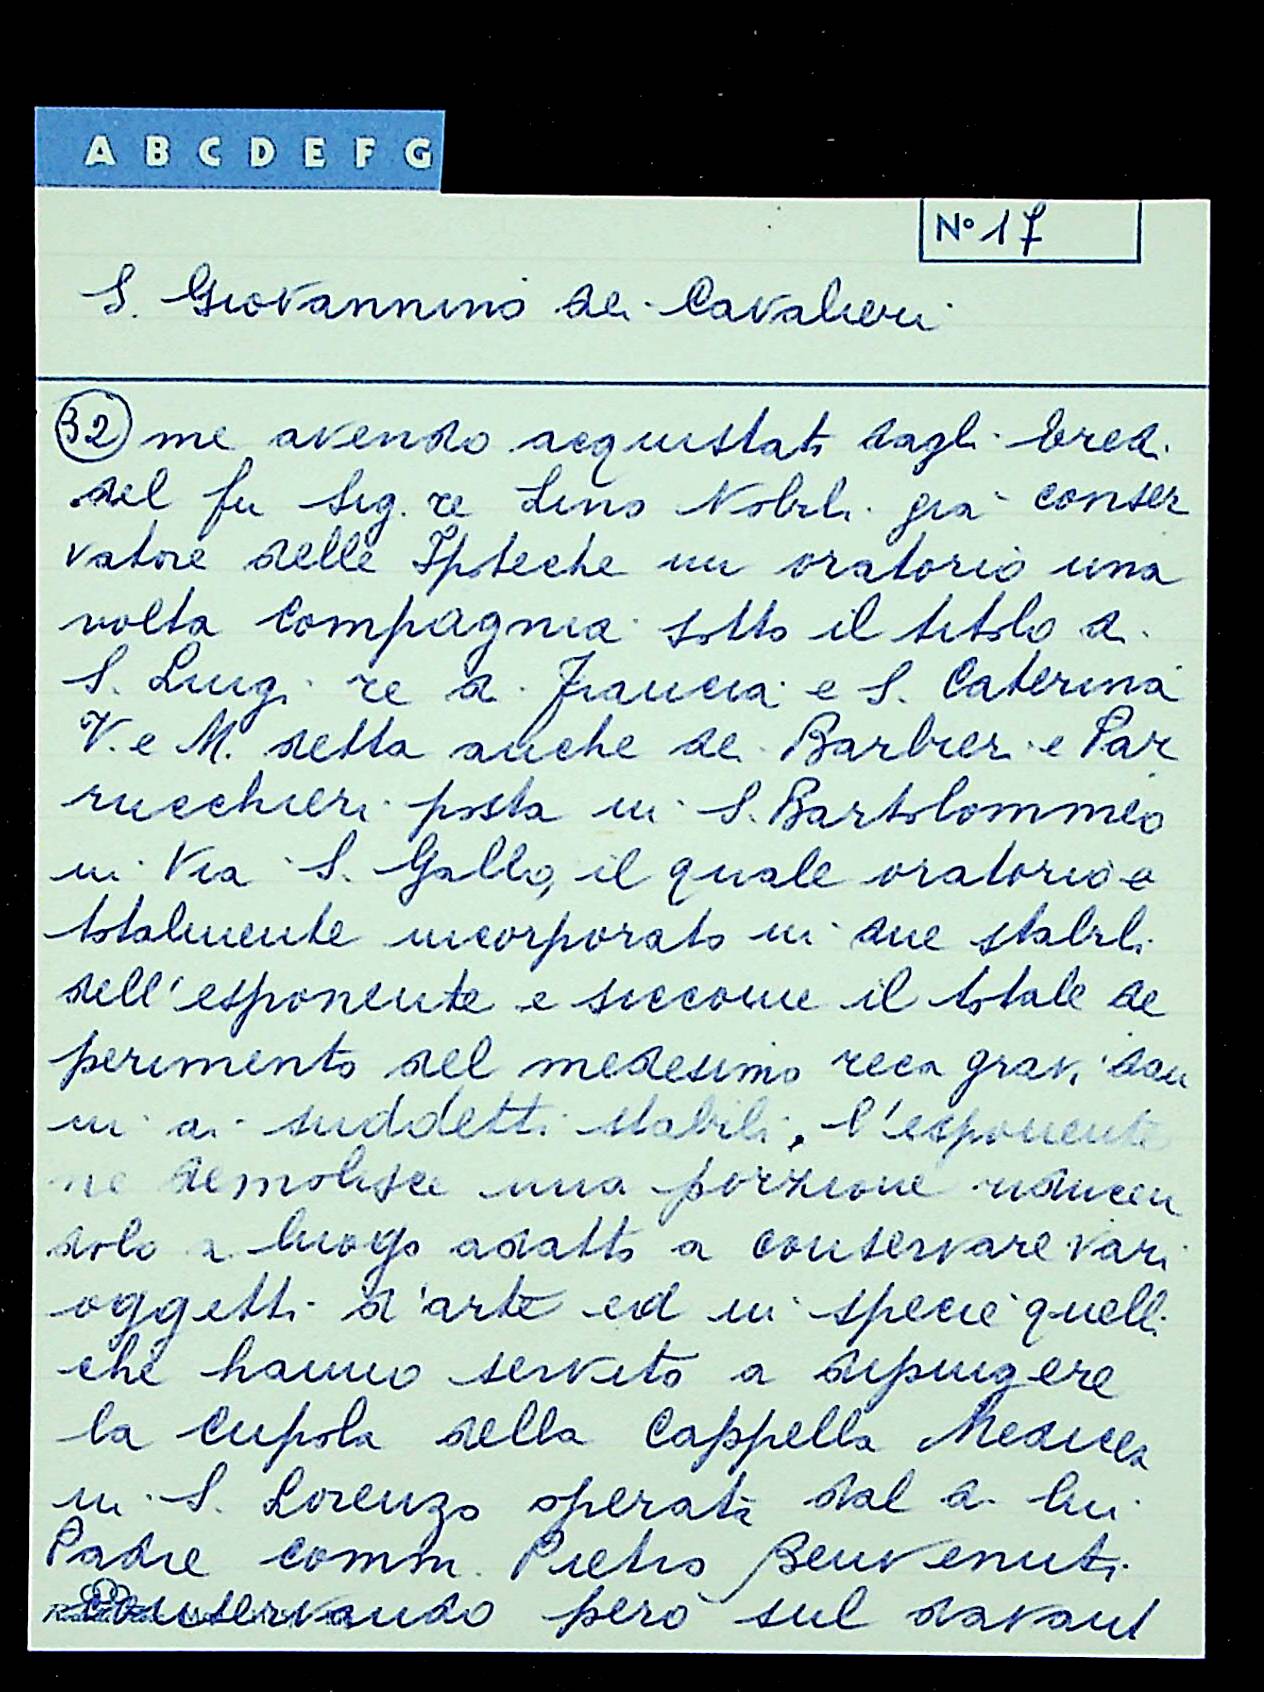 A B C D E F G
N° 17
S. Giovannino dei Cavalieri
32 me avendo acquistato dagli Eredi
del fu Sig.re Lino Nobili già conser
vatore delle Ipoteche un oratorio una
volta Compagnia sotto il titolo di
S. Luigi re di Francia e S. Caterina
V. e M. detta anche dei Barbieri e Par
rucchieri posta in S. Bartolommeo
in Via S. Gallo, il quale oratorio è
totalmente incorporato in due stabili
dell'esponente e siccome il totale de
perimento del medesimo reca gravi dan
ni ai suddetti stabili, l'esponente
ne demolisce una porzione riducen
dolo a luogo adatto a conservare vari
oggetti d'arte ed in specie quelli
che hanno servito a dipingere
la Cupola della Cappella Medicea
in S. Lorenzo operati dal di lui
Padre comm. Pietro Benvenuti
conservando però sul davant